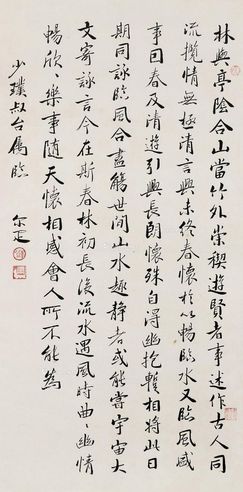 林與亭陰合山當竹外崇禊遊賢者事述作古人同
流攬情無極清言興未終春懷於以暢臨水又臨風感
事回春及清遊引興長朗懷殊自得幽抱暫相將此日
期同詠臨風合盡觴世間山水趣靜者或能嘗宇宙大
文寄詠言今在斯春林初長後流水遇風時曲〻幽情
暢欣〻樂事隨天懷相感會人所不能為
少璞叔台屬臨